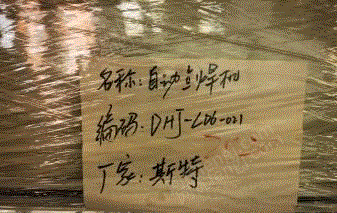 名称：自动点焊机
编码：DHJ-L06-021
厂家：斯特